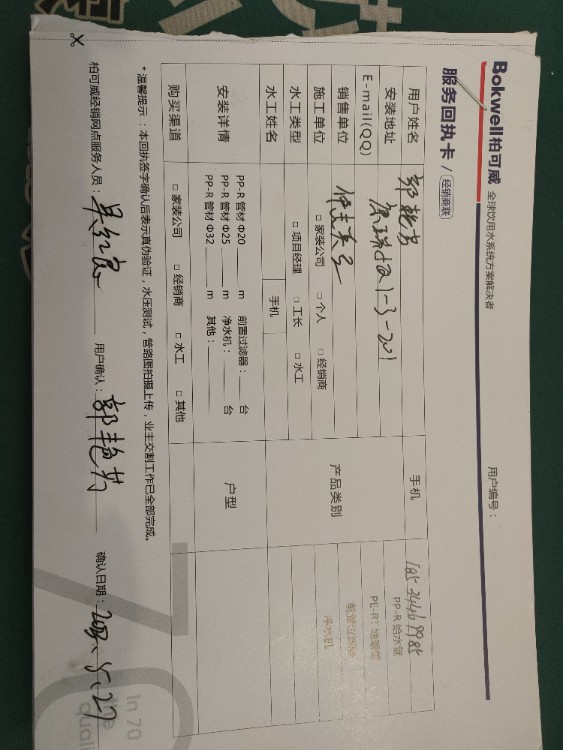 Bokwell柏可威 全球饮用水系统方案解决者
服务回执卡 / 经销商联
用户编号：
用户姓名 手机
安装地址 1-3-201 PP-R 给水管
E-mail(QQ) PE-RT地暖管
销售单位 产品类别
施工单位 □家装公司 □个人 □经销商 净水机
水工类型 □项目经理 □工长 □水工
水工姓名 手机
安装详情 PP-R管材 Φ20 m 前置过滤器： 台 户型
PP-R管材 Φ25 m 净水机： 台
PP-R管材 Φ32 m 其他：
购买渠道 □家装公司 □经销商 □水工 □其他
*温馨提示：本回执签字确认后表示真伪验证，水压测试，管路图拍摄上传，业主交割工作已全部完成。
柏可威经销网点服务人员： 吴红良 用户确认： 郭艳芳 确认日期：
In 70
the
quali